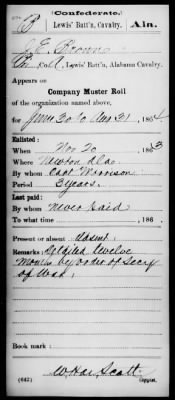 (Confederate.)
B Lewis' Batt'n, Cavalry. Ala.
J E Brown
Lewis' Batt'n, Alabama Cavalry.
Appears on
Company Muster Roll
of the organization named above,
for June 30 to Aug 31, 1864
Enlisted:
When Nov 20, 1863
Where Newton Ala
By whom Capt Morrison
Period 3 years.
Last paid:
By whom Never paid
To what time , 186 .
Present or absent: Absent.
Remarks: Detailed twelve
months by order of Secry
of War.
Book mark:
(642) Copyist.